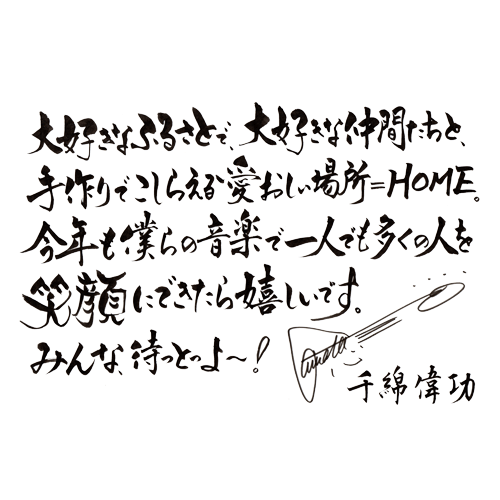 大好きなふるさとで、大好きな仲間たちと、
手作りでこしらえる愛おしい場所=HOME。
今年も僕らの音楽で一人でも多くの人を
笑顔にできたら嬉しいです。
みんな、待っとっよ〜!
千綿偉功